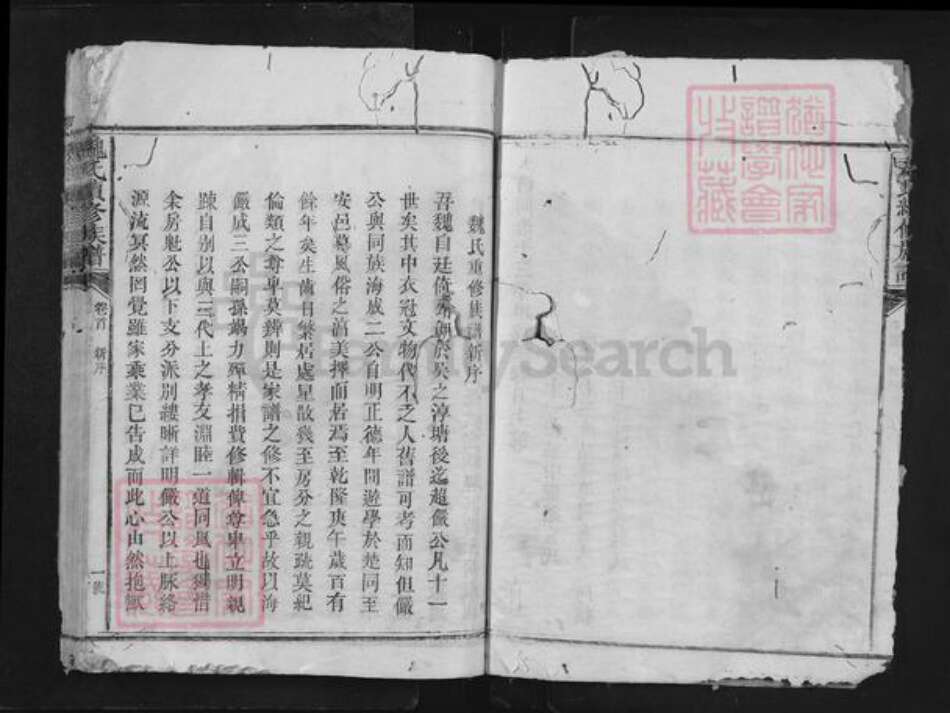 魏氏重修族譜新序
吾魏自廷倚公創於吳之淳塘後迄趙儼公凡十一
世矣其中衣冠文物代不乏人舊譜可考而知但儼
公與同族海成二公自明正德年間遊學於楚同至
安邑慕風俗之淳美擇而居焉至乾隆庚午歲百有
餘年矣生齒日繁居處星散幾至房分之親踈莫紀
倫類之尊卑莫辨則是家譜之修不宜急乎故以海
儼成三公嗣孫竭力殫精捐費修輯俾尊卑立明親
踈自別以與三代上之孝友淵睦一道同風也獨惜
余房魁公以下支分派別縷晰詳明儼公以上脉絡
源流冥然罔覺雖家乘業已告成而此心由然抱慨
魏氏續修族譜
卷首 新序
一號
FamilySearch
猶他家譜學會收藏